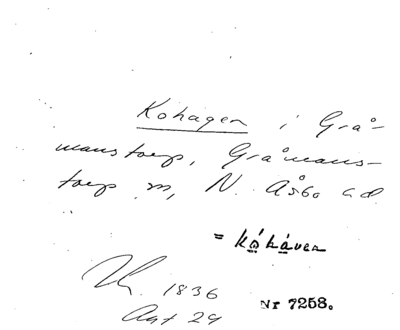 Kohagen i Grå-
manstorp, Gråmans-
torp sn, N. Åsbo hd
= kóháven
1836
24
Nr 7258.